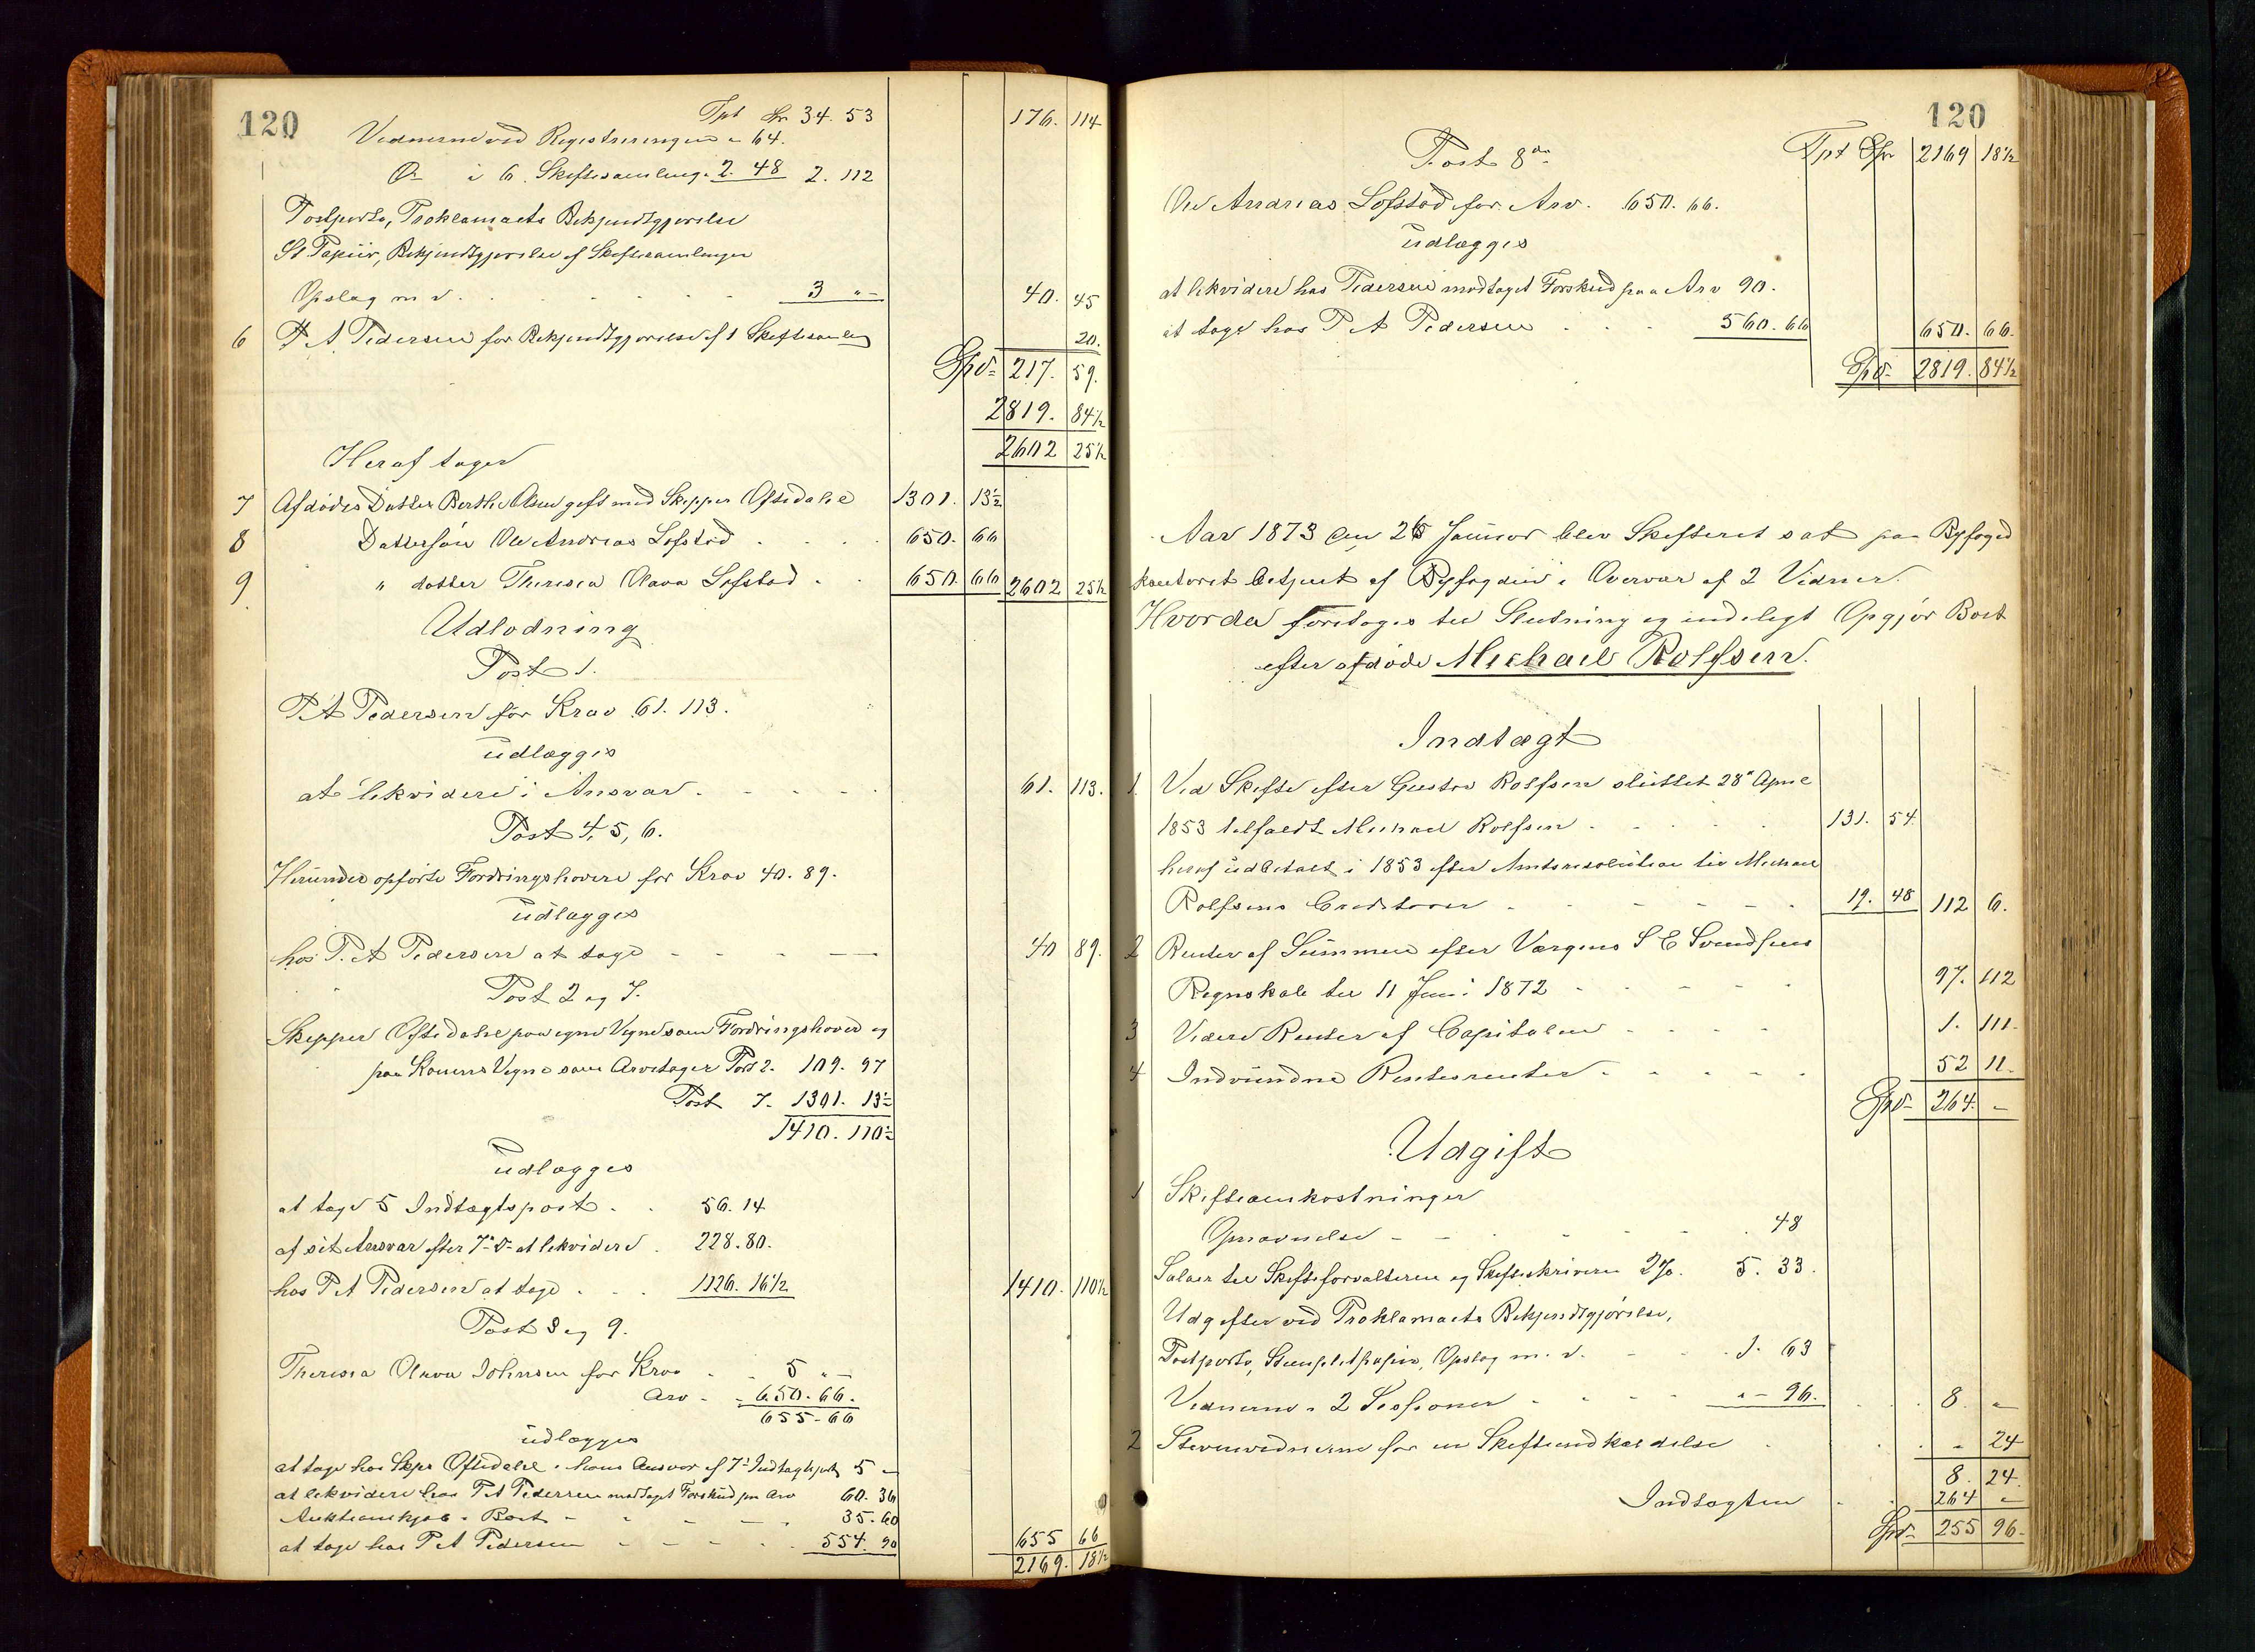 120
Tpt Sp 34. 53
176. 114
Vidnerne ved Registreringen " 64.
Do i 6. Skiftesamling. 2. 48 2. 112
Postporto, Proklamaets Bekjendtgjørelse
St Papiir, Bekjendtgjørelse af Skiftesamlinger
Opslag m v. 3 " 40. 45
6 P A Pedersen for Bekjendtgjørelse af 1 Skiftesamlg 20.
Spd 217. 59.
2819. 84½
2602 25½
Heraf tager
7 Afdødes Datter Berthe Olsen gift med Skipper Oftedahl 1301. 13½
8 Dattersøn Ole Andreas Lofstad 650. 66
9 " datter Theresia Olava Lofstad 650. 66 2602 25½
Udlodning
Post 1.
P A Pedersen for Krav 61. 113.
udlægges
at likvidere i Ansvar 61. 113.
Post 4, 5, 6.
Herunder opførte Fordringshavere for Krav 40. 89.
udlægges
hos P. A Pedersen at tage 40 89.
Post 2 og 7.
Skipper Oftedahl paa egne Vegne som Fordringshaver og
paa Konens Vegne som Arvetager Post 2. 109. 97
Post 7. 1301. 13½
1410. 110½
udlægges
at tage 5 Indtægtspost 56. 14
af sit Ansvar efter 7 do at likvidere 228. 80.
hos P A Pedersen at tage 1126. 16½ 1410. 110½
Post 8 og 9.
Theresia Olava Johnsen for Krav 5 "
Arv 650. 66.
655 - 66
udlægges
at tage hos Skpr Oftedahl i hans Ansvar af 7 Indtægtspost 5 "
at likvidere hos P A Pedersen modtaget Forskud paa Arv 60. 36
Auktionskjøb i Boet 35. 60
at tage hos P A Pedersen 554. 90 655 66
2169. 18½
120
Tpt Spd 2169 18½
Post 8
Ole Andreas Lofstad for Arv. 650. 66.
udlægges
at likvidere hos Pedersen modtaget Forskud paa Arv 90.
at tage hos P A Pedersen 560. 66 650. 66.
Spd 2819. 84½
Aar 1873 den 26 Januar blev Skifteret sat paa Byfoged
kontoret betjent af Byfogden i Overvær af 2 Vidner.
Hvorda foretoges til Slutning og endeligt Opgjør Boet
efter afdøde Michael Rolfsen.
Indtægt
1 Ved Skifte efter Gustav Rolfsen sluttet 28 April
1853 tilfaldt Michael Rolfsen 131. 54.
heraf udbetalt i 1853 efter Amtsresolution til Michael
Rolfsens Creditorer 19. 48 112 6.
2 Renter af Summen efter Værgens S E Svendsens
Regnskab til 11 Juni 1872 97. 112
3 Videre Renter af Capitalen 1. 111.
4 Indvundne Rentesrenter 52 11.
Spd 264. "
Udgift
1 Skifteomkostninger
Opnævnelse 48
Salær til Skifteforvalteren og Skifteskriveren 2%. 5. 33.
Udgifter ved Proklamaets Bekjendtgjørelse,
Postporto, Stemplet papir, Opslag m. v. 1. 63
Vidnerne i 2 Sessioner " 96. 8. "
2 Stevnevidnerne for en Skifteindkaldelse " 24
8. 24.
Indtægten 264 "
Spd 255 96